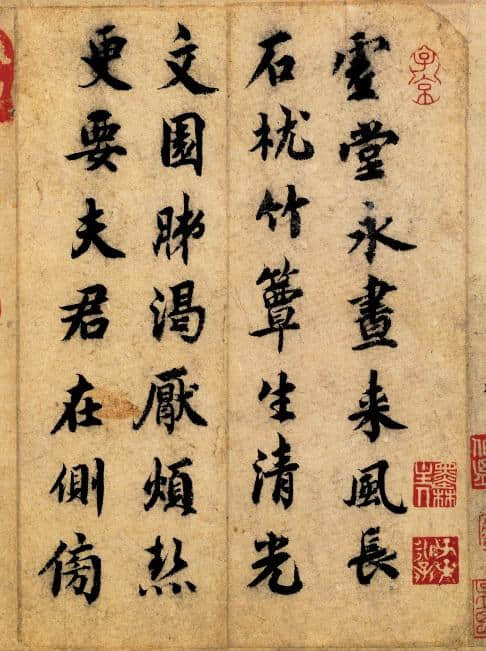 子京
虚堂永晝来風長
石枕竹簟生清光
文園肺渴厭煩熱
更要夫君在側傍